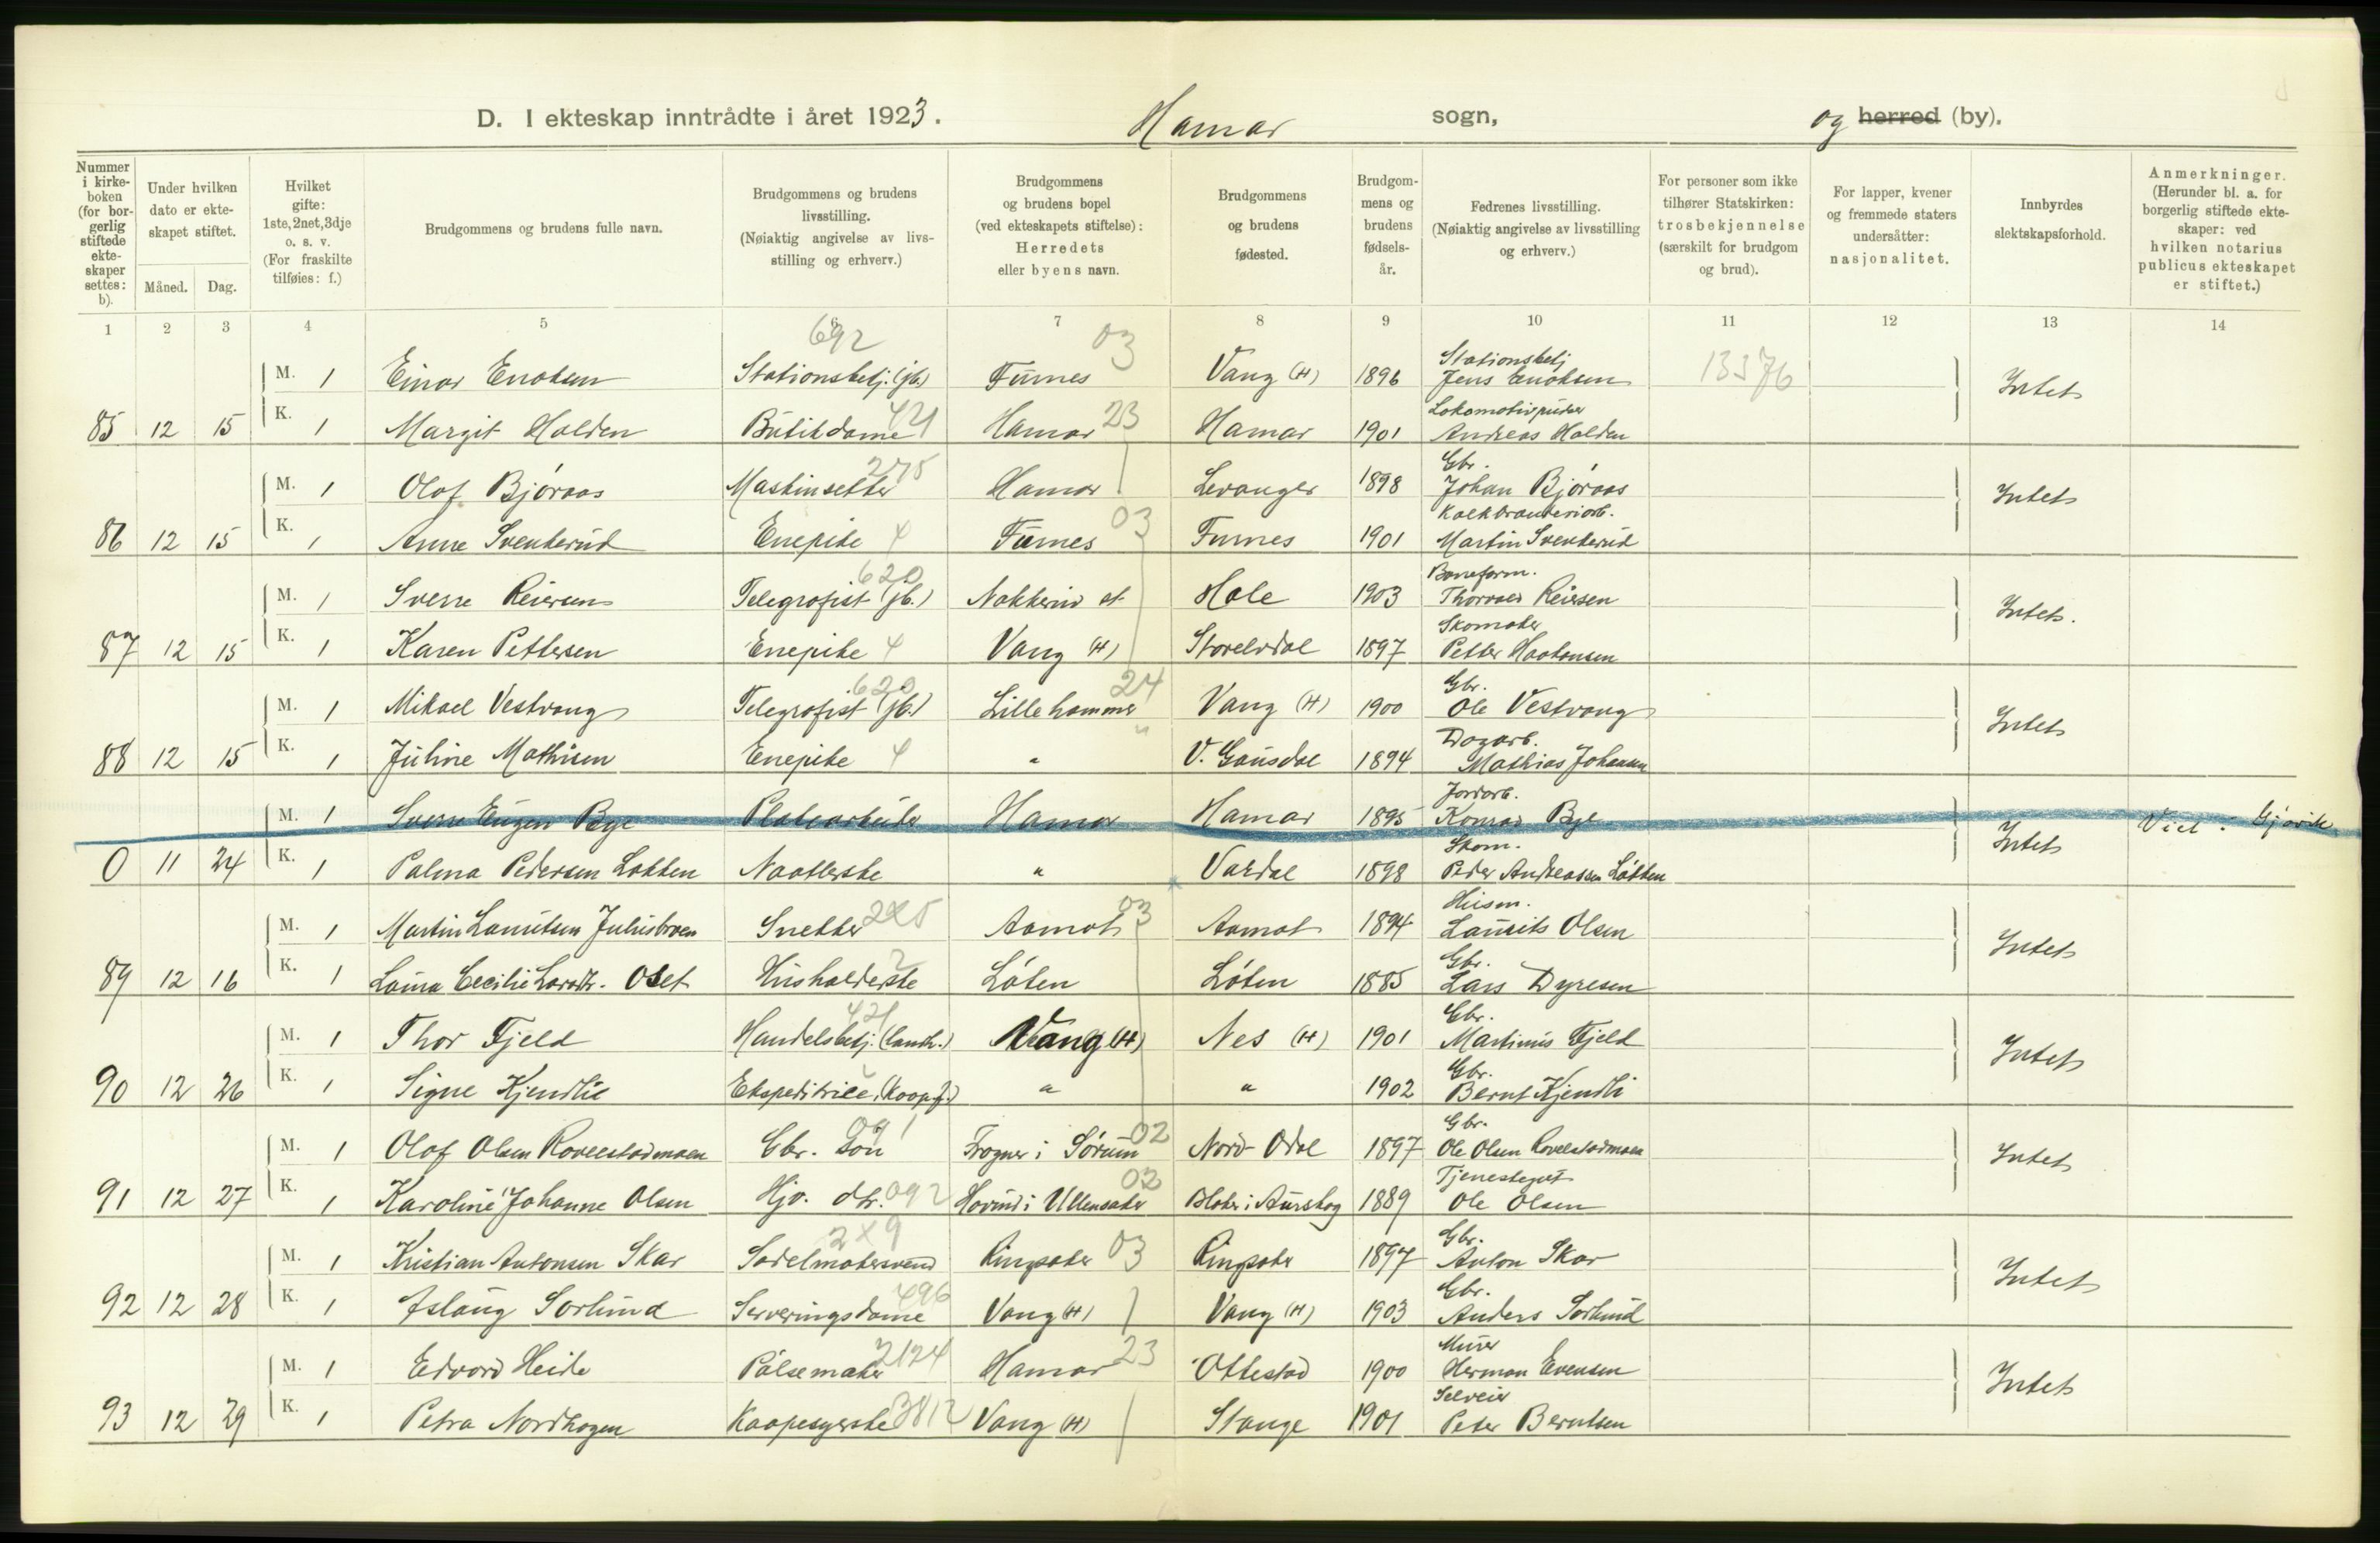 D. I ekteskap inntrådte i året 1923. Hamar sogn, og herred (by).
Nummer i kirkeboken (for borgerlig stiftede ekteskaper settes: b).
Under hvilken dato er ekteskapet stiftet.
Måned. Dag.
Hvilket gifte: 1ste, 2net, 3dje o. s. v. (For fraskilte tilføies: f.)
Brudgommens og brudens fulle navn.
Brudgommens og brudens livsstilling. (Nøiaktig angivelse av livsstilling og erhverv.)
Brudgommens og brudens bopel (ved ekteskapets stiftelse): Herredets eller byens navn.
Brudgommens og brudens fødested.
Brudgommens og brudens fødselsår.
Fedrenes livsstilling. (Nøiaktig angivelse av livsstilling og erhverv.)
For personer som ikke tilhører Statskirken: trosbekjennelse (særskilt for brudgom og brud).
For lapper, kvener og fremmede staters undersåtter: nasjonalitet.
Innbyrdes slektskapsforhold.
Anmerkninger. (Herunder bl. a. for borgerlig stiftede ekteskaper: ved hvilken notarius publicus ekteskapet er stiftet.)
1 2 3 4 5 6 7 8 9 10 11 12 13 14
692 03
M. 1 Einar Enoksen Stationsbetj. (jb.) Furnes Vang (H) 1896 Stationsbetj Jens Enoksen 13376 Intet
85 12 15 K. 1 Margit Holden Butikdame 421 Hamar 23 Hamar 1901 Lokomotivpudser Andreas Holden
M. 1 Olaf Björaas Maskinsetter 275 Hamar Levanger 1898 Gbr. Johan Björaas Intet
86 12 15 K. 1 Anne Svenkerud Enepike 4 Furnes 03 Furnes 1901 Kalkbrænderiarb. Martin Svenkerud
M. 1 Sverre Reiersen Telegrafist (jb.) 620 Nakkerud st Hole 1903 Baneform. Thorvald Reiersen Intet.
87 12 15 K. 1 Karen Pettersen Enepike 4 Vang (H) Storelvdal 1897 Skomaker Petter Haakonsen
M. 1 Mikael Vestvang Telegrafist (jb.) 620 Lillehammer 24 Vang (H) 1900 Gbr. Ole Vestvang Intet
88 12 15 K. 1 Juline Mathisen Enepike 4 " V. Gausdal 1894 Dagarb. Mathias Johansen
M. 1 Sverre Eugen Bye Platearbeider Hamar Hamar 1895 Jordarb. Konrad Bye Intet Viet i Gjøvik
0 11 24 K. 1 Palma Pedersen Løkken Naatlerske " Vardal 1898 Skom. Peder Andreassen Løkken
M. 1 Martin Lauritsen Julusbroen Snekker 225 Aamot 03 Aamot 1894 Husm. Laurits Olsen Intet
89 12 16 K. 1 Laura Cecilie Larsdtr. Oset Husholderske 2 Löten Löten 1885 Gbr. Lars Dyresen
M. 1 Thor Fjeld Handelsbetj. (landh.) 421 Vang (H) Nes (H) 1901 Gbr. Martinus Fjeld Intet
90 12 26 K. 1 Signe Kjendlie Ekspeditrice (Koopf.) " " 1902 Gbr. Bernt Kjendli
M. 1 Olaf Olsen Rovelstadmoen Gbr. Søn 091 Frogner i Sörum 02 Nord-Odal 1897 Gbr. Ole Olsen Rovelstadmoen Intet
91 12 27 K. 1 Karoline Johanne Olsen Hjv. dtr. 092 Hovind i Ullensaker 02 Blaker i Aurskog 1889 Tjenestegut Ole Olsen
M. 1 Kristian Antonsen Skar Sadelmakersvend 229 Ringsaker 03 Ringsaker 1897 Gbr. Anton Skar Intet
92 12 28 K. 1 Aslaug Sorlund Serveringsdame 496 Vang (H) Vang (H) 1903 Gbr. Anders Sorlund
M. 1 Edvard Heide Pölsemaker 2124 Hamar 23 Ottestad 1900 Murer Herman Evensen Intet
93 12 29 K. 1 Petra Nordhagen Kaapesyerske 3812 Vang (H) Stange 1901 Selveier Peter Berntsen